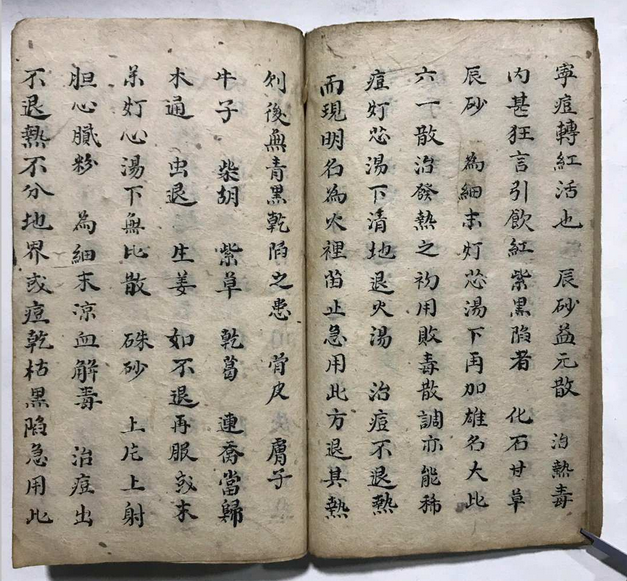 寧痘轉紅活也　辰砂益元散　治熱毒
內甚狂言引飲紅紫黑陷者　化石甘草
辰砂　為細末灯芯湯下再加雄名大此
六一散治發熱之初用敗毒散調亦能稀
痘灯芯湯下清地退火湯　治痘不退熱
而現明名為火裡苗止急用此方退其熱
列後無青黑乾陷之患　骨皮　膚子
牛子　柴胡　紫草　乾葛　連喬當歸
木通　虫退　生姜　如不退再服或末
灯心湯下無比散　硃砂　上片上射
胆心臟粉　為細末凉血解毒　治痘出
不退熱不分地界或痘乾枯黑陷急用此